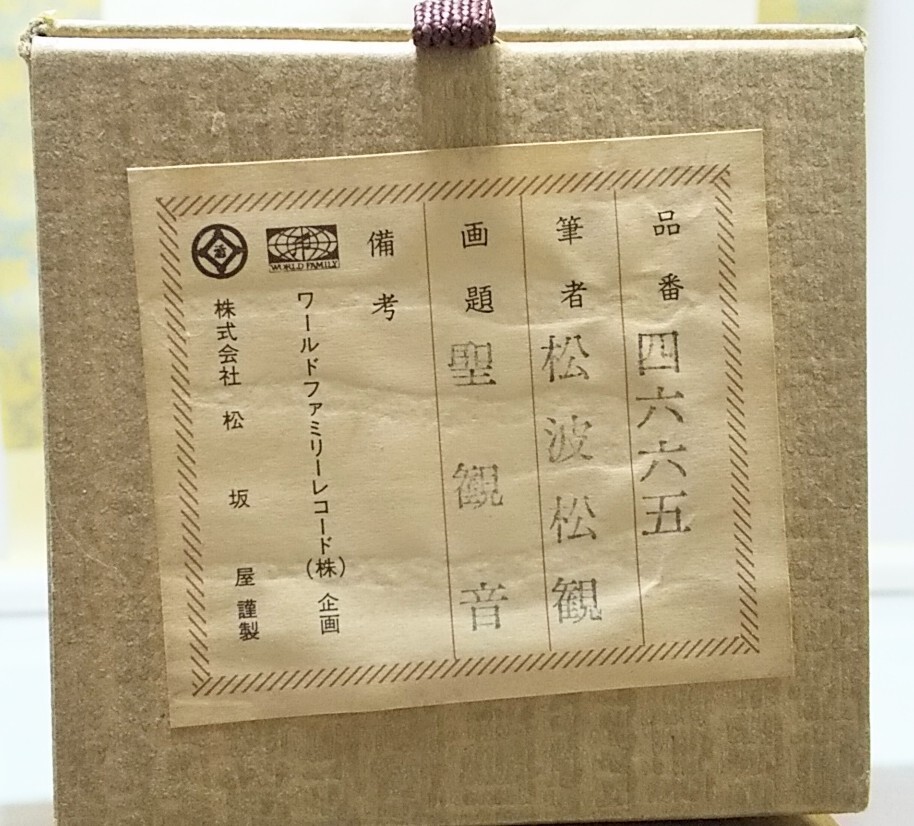 品番 四六六五
筆者 松波松観
画題 聖観音
備考
WORLD FAMILY
ワールドファミリーレコード(株)企画
株式会社 松坂屋 謹製